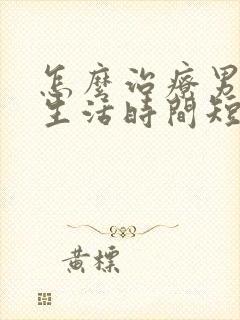 怎麼治療男
生活時間短
黃標